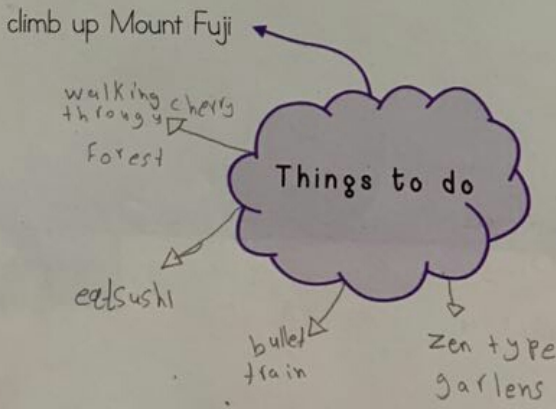 climb up Mount Fuji
walking cherry
througy
Forest
Things to do
eatsushi
bullet
train
zen type
garlens